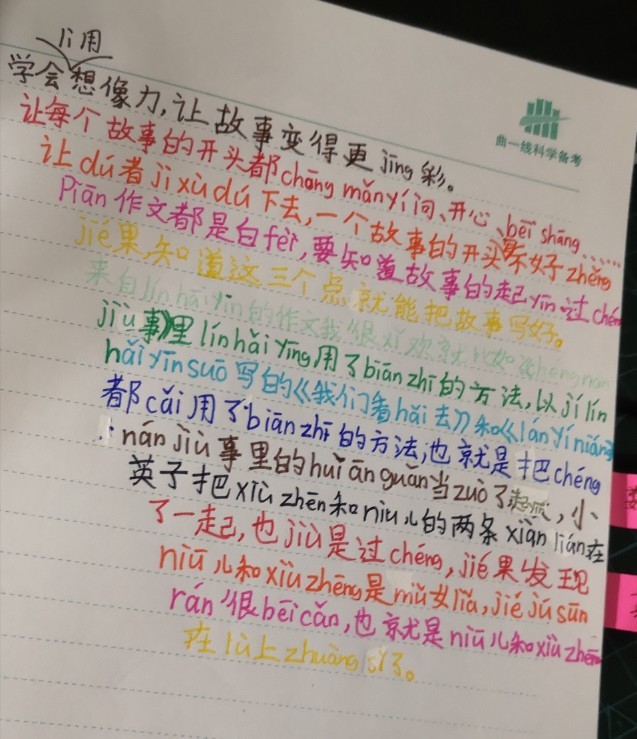 li用
学会想像力,让故事变得更jīng彩。
曲一线科学备考
让每个故事的开头都chōng mǎn yí问、开心、bēi shāng……
让dú者jì xù dú下去,一个故事的开头不好zhěng
Piān作文都是白fèi,要知道故事的起yīn过chéng
jié果,知道这三个点就能把故事写好。
来自lín hǎi yīn的作文我很xǐ欢就
jiù事》里lín hǎi yīng用了biān zhī的方法,以及lín
hǎi yīn suō写的《我们看hǎi去》和《lán yí niáng
都cǎi用了biān zhī的方法,也就是把chéng
nán jiù事里的huì ān guǎn当zuò了起点,小
英子把xiù zhēn和niu儿的两条xiàn lián在
了一起,也jiù是过chéng,jié果发现
niū儿和xiù zhēng是mǔ女liǎ,jié jú sūn
rán很bēi cǎn,也就是niū儿和xiù zhēn
在lù上zhuàng sǐ了。